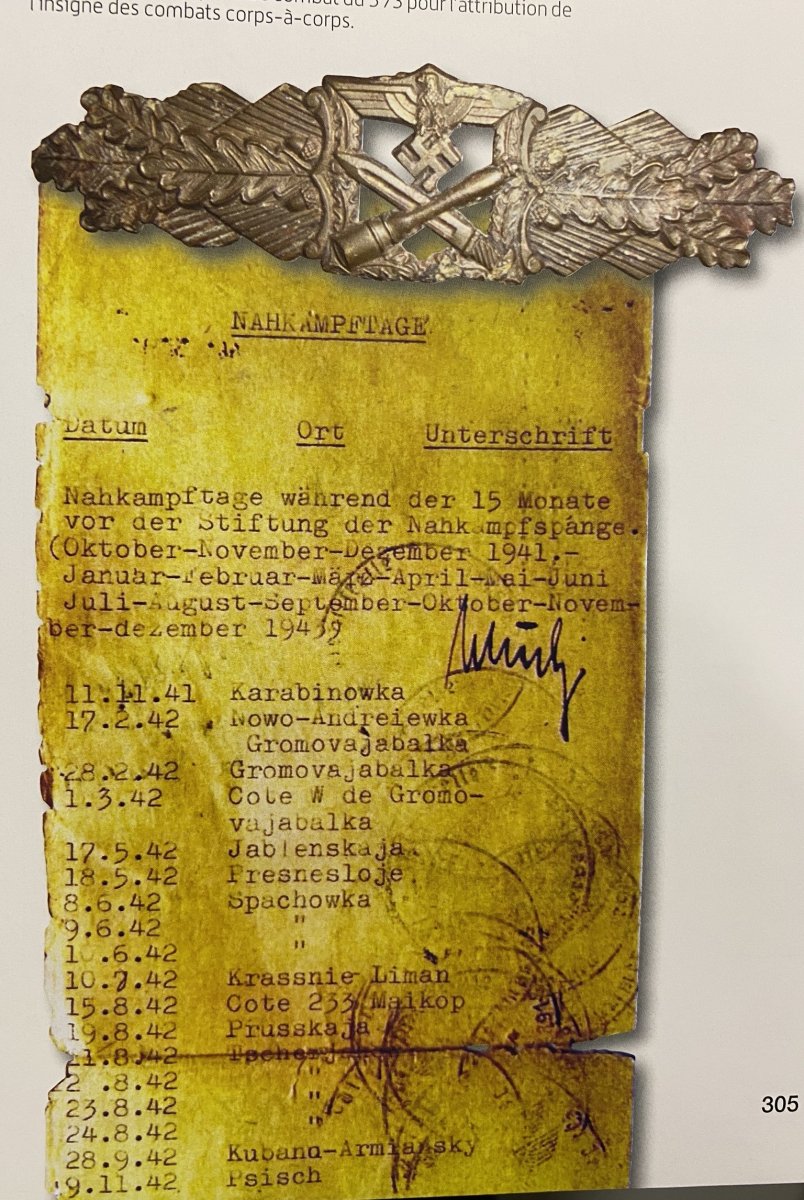 pour l'attribution de
l'insigne des combats corps-à-corps.
NAHKAMPFTAGE
Datum Ort Unterschrift
Nahkampftage während der 15 Monate
vor der Stiftung der Nahkampfspange.
(Oktober-November-Dezember 1941.-
Januar-Februar-März-April-Mai-Juni
Juli-August-September-Oktober-Novem-
ber-dezember 194
11.11.41 Karabinowka
17.2.42 Nowo-Andreiewka
Gromovajabalka
28.2.42 Gromovajabalka
1.3.42 Cote W de Gromo-
vajabalka
17.5.42 Jablenskaja
18.5.42 Presnesloje
8.6.42 Spachowka
9.6.42 "
.6.42 "
10.7.42 Krassnie Liman
15.8.42 Cote 233 Maikop
19.8.42 Prusskaja
21.8.42
.8.42 "
23.8.42 "
24.8.42
28.9.42 Kubano-Armiansky
9.11.42 Psisch
305